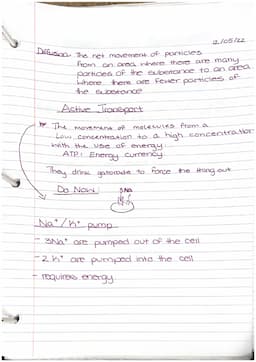 2/05/22
Diffusion: The net movement of particles
from an area where there are many
particles of the substance to an area
where there are fewer particles of
the substance
Active Transport
* The movement of molecules from a
Low concentration to a high concentration
with the use of energy.
ATP: Energy currency
They drink gatorade to force the
Do Now:
3Na
Na⁺/K⁺ pump
- 3Na⁺ are pumped out of the cell
- 2 K⁺ are pumped into the cell
- requires energy